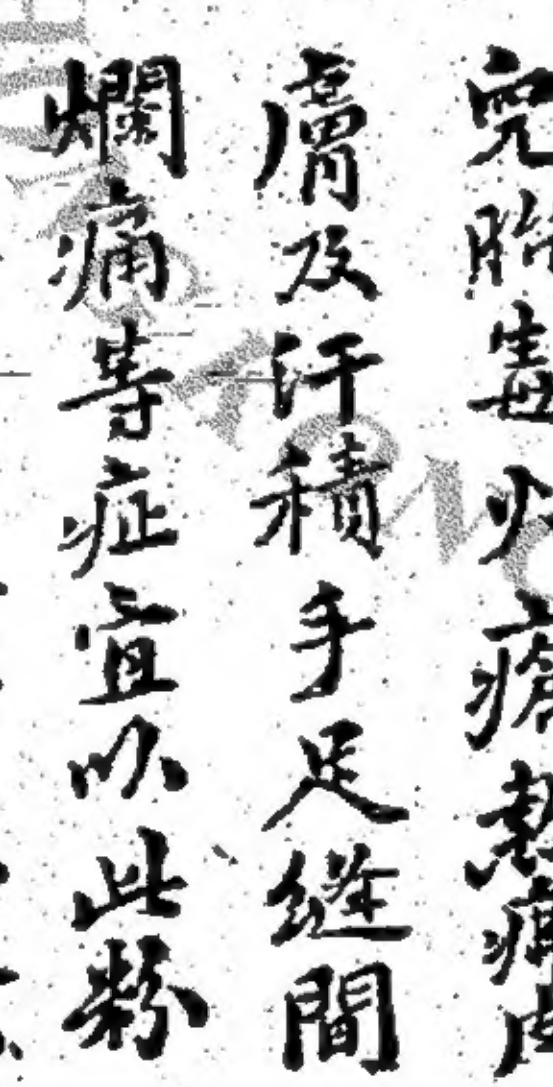 兒胎毒火瘡熱痱皮
膚及汗積手足縫間
爛痛等症宜以此粉